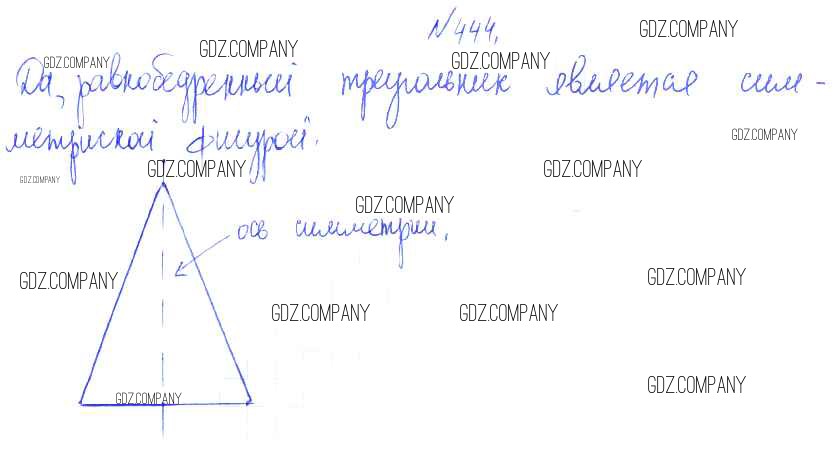 №444.
GDZ.COMPANY
GDZ.COMPANY
GDZ.COMPANY
GDZ.COMPANY
Да, равнобедренный треугольник является сим-
метриской фигурой.
GDZ.COMPANY
GDZ.COMPANY
GDZ.COMPANY
GDZ.COMPANY
GDZ.COMPANY
ось симметрии.
GDZ.COMPANY
GDZ.COMPANY
GDZ.COMPANY
GDZ.COMPANY
GDZ.COMPANY
GDZ.COMPANY